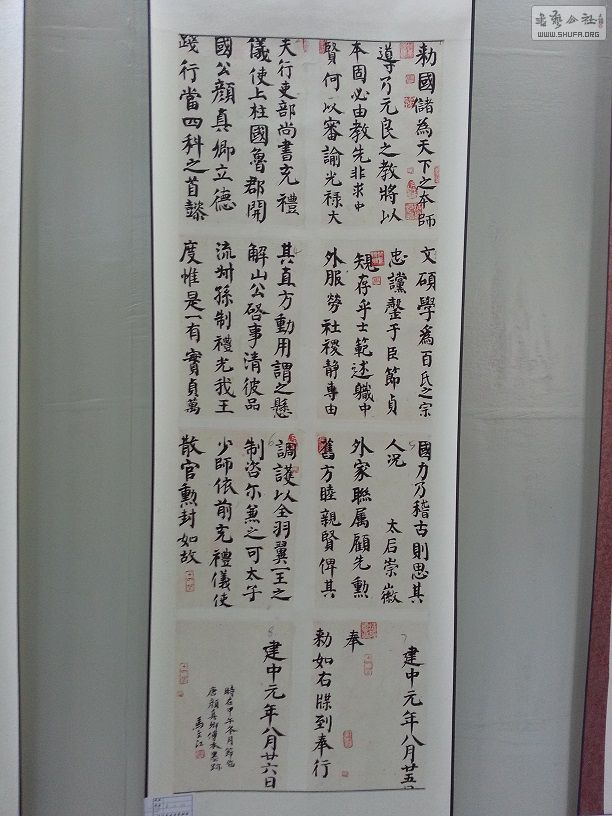 书艺公社
WWW.SHUFA.ORG
勅國儲為天下之本師
導乃元良之教將以
本固必由教先非求中
賢何以審諭光禄大
夫行吏部尚書充禮
儀使上柱國魯郡開
國公顏真卿立德
踐行當四科之首懿
文碩學為百氏之宗
忠讜罄于臣節貞
規存乎士範述職中
外服勞社稷靜專由
其直方動用謂之懸
解山公啓事清彼品
流叔孫制禮光我王
度惟是一有實貞萬
國力乃稽古則思其
人况 太后崇徽
外家聯属顧先勳
舊方睦親賢俾其
調護以全羽翼一王之
制咨尔兼之可太子
少師依前充禮儀使
散官勲封如故
建中元年八月廿五日
奉
勅如右牒到奉行
建中元年八月廿六日
時在甲午冬月節臨
唐顏真卿傳本墨跡